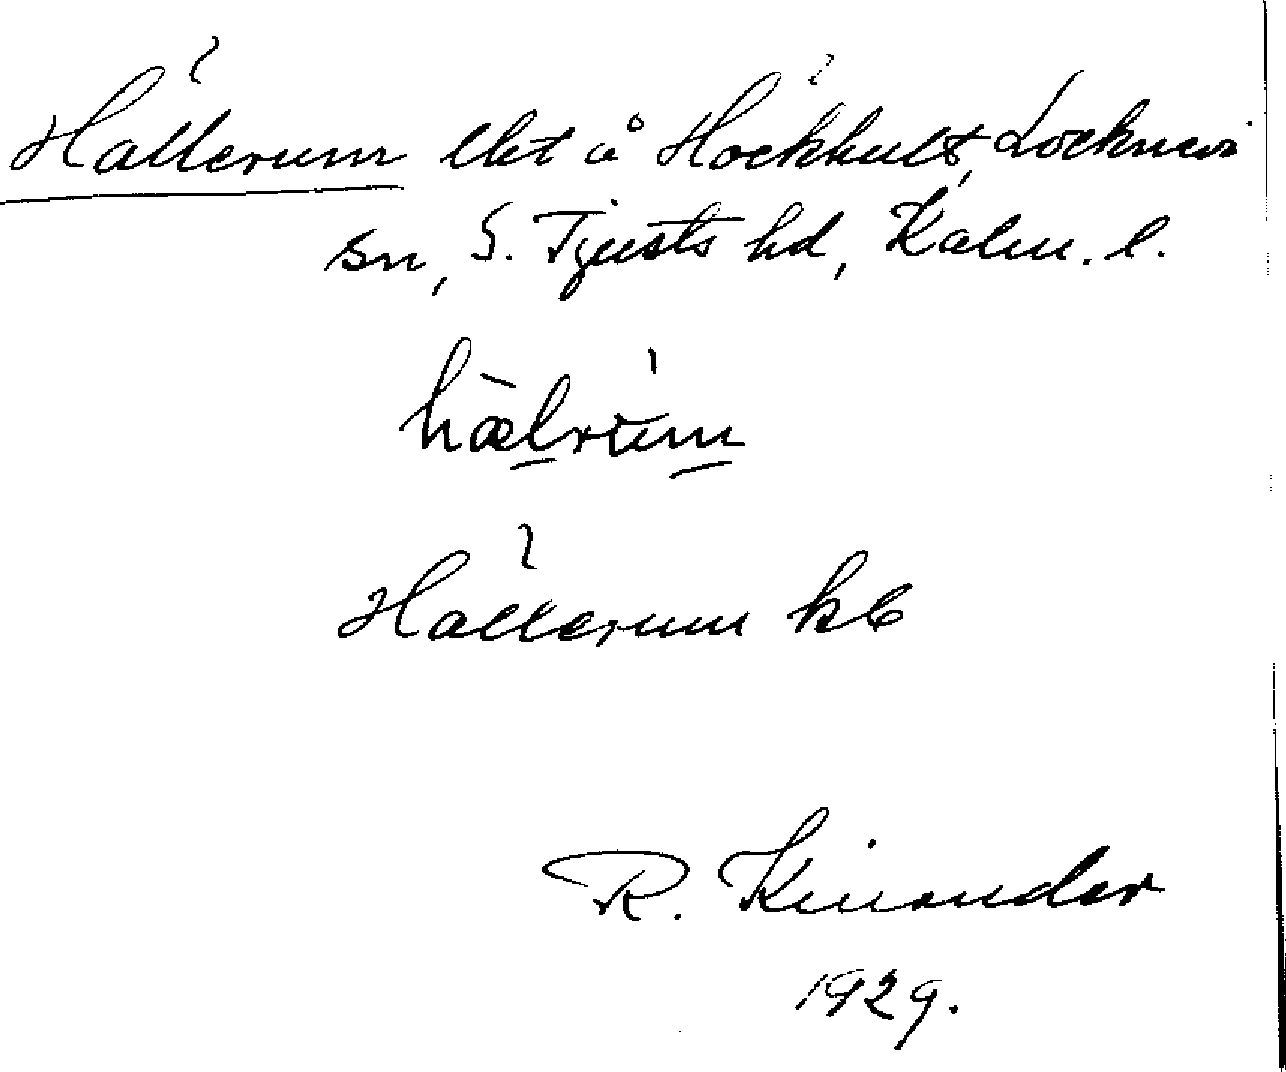 Hällerum lht å Hökhult, Locknevi
sn, S. Tjusts hd, Kalm. l.
hælrum
Hällerum kb
R. Kinander
1929.